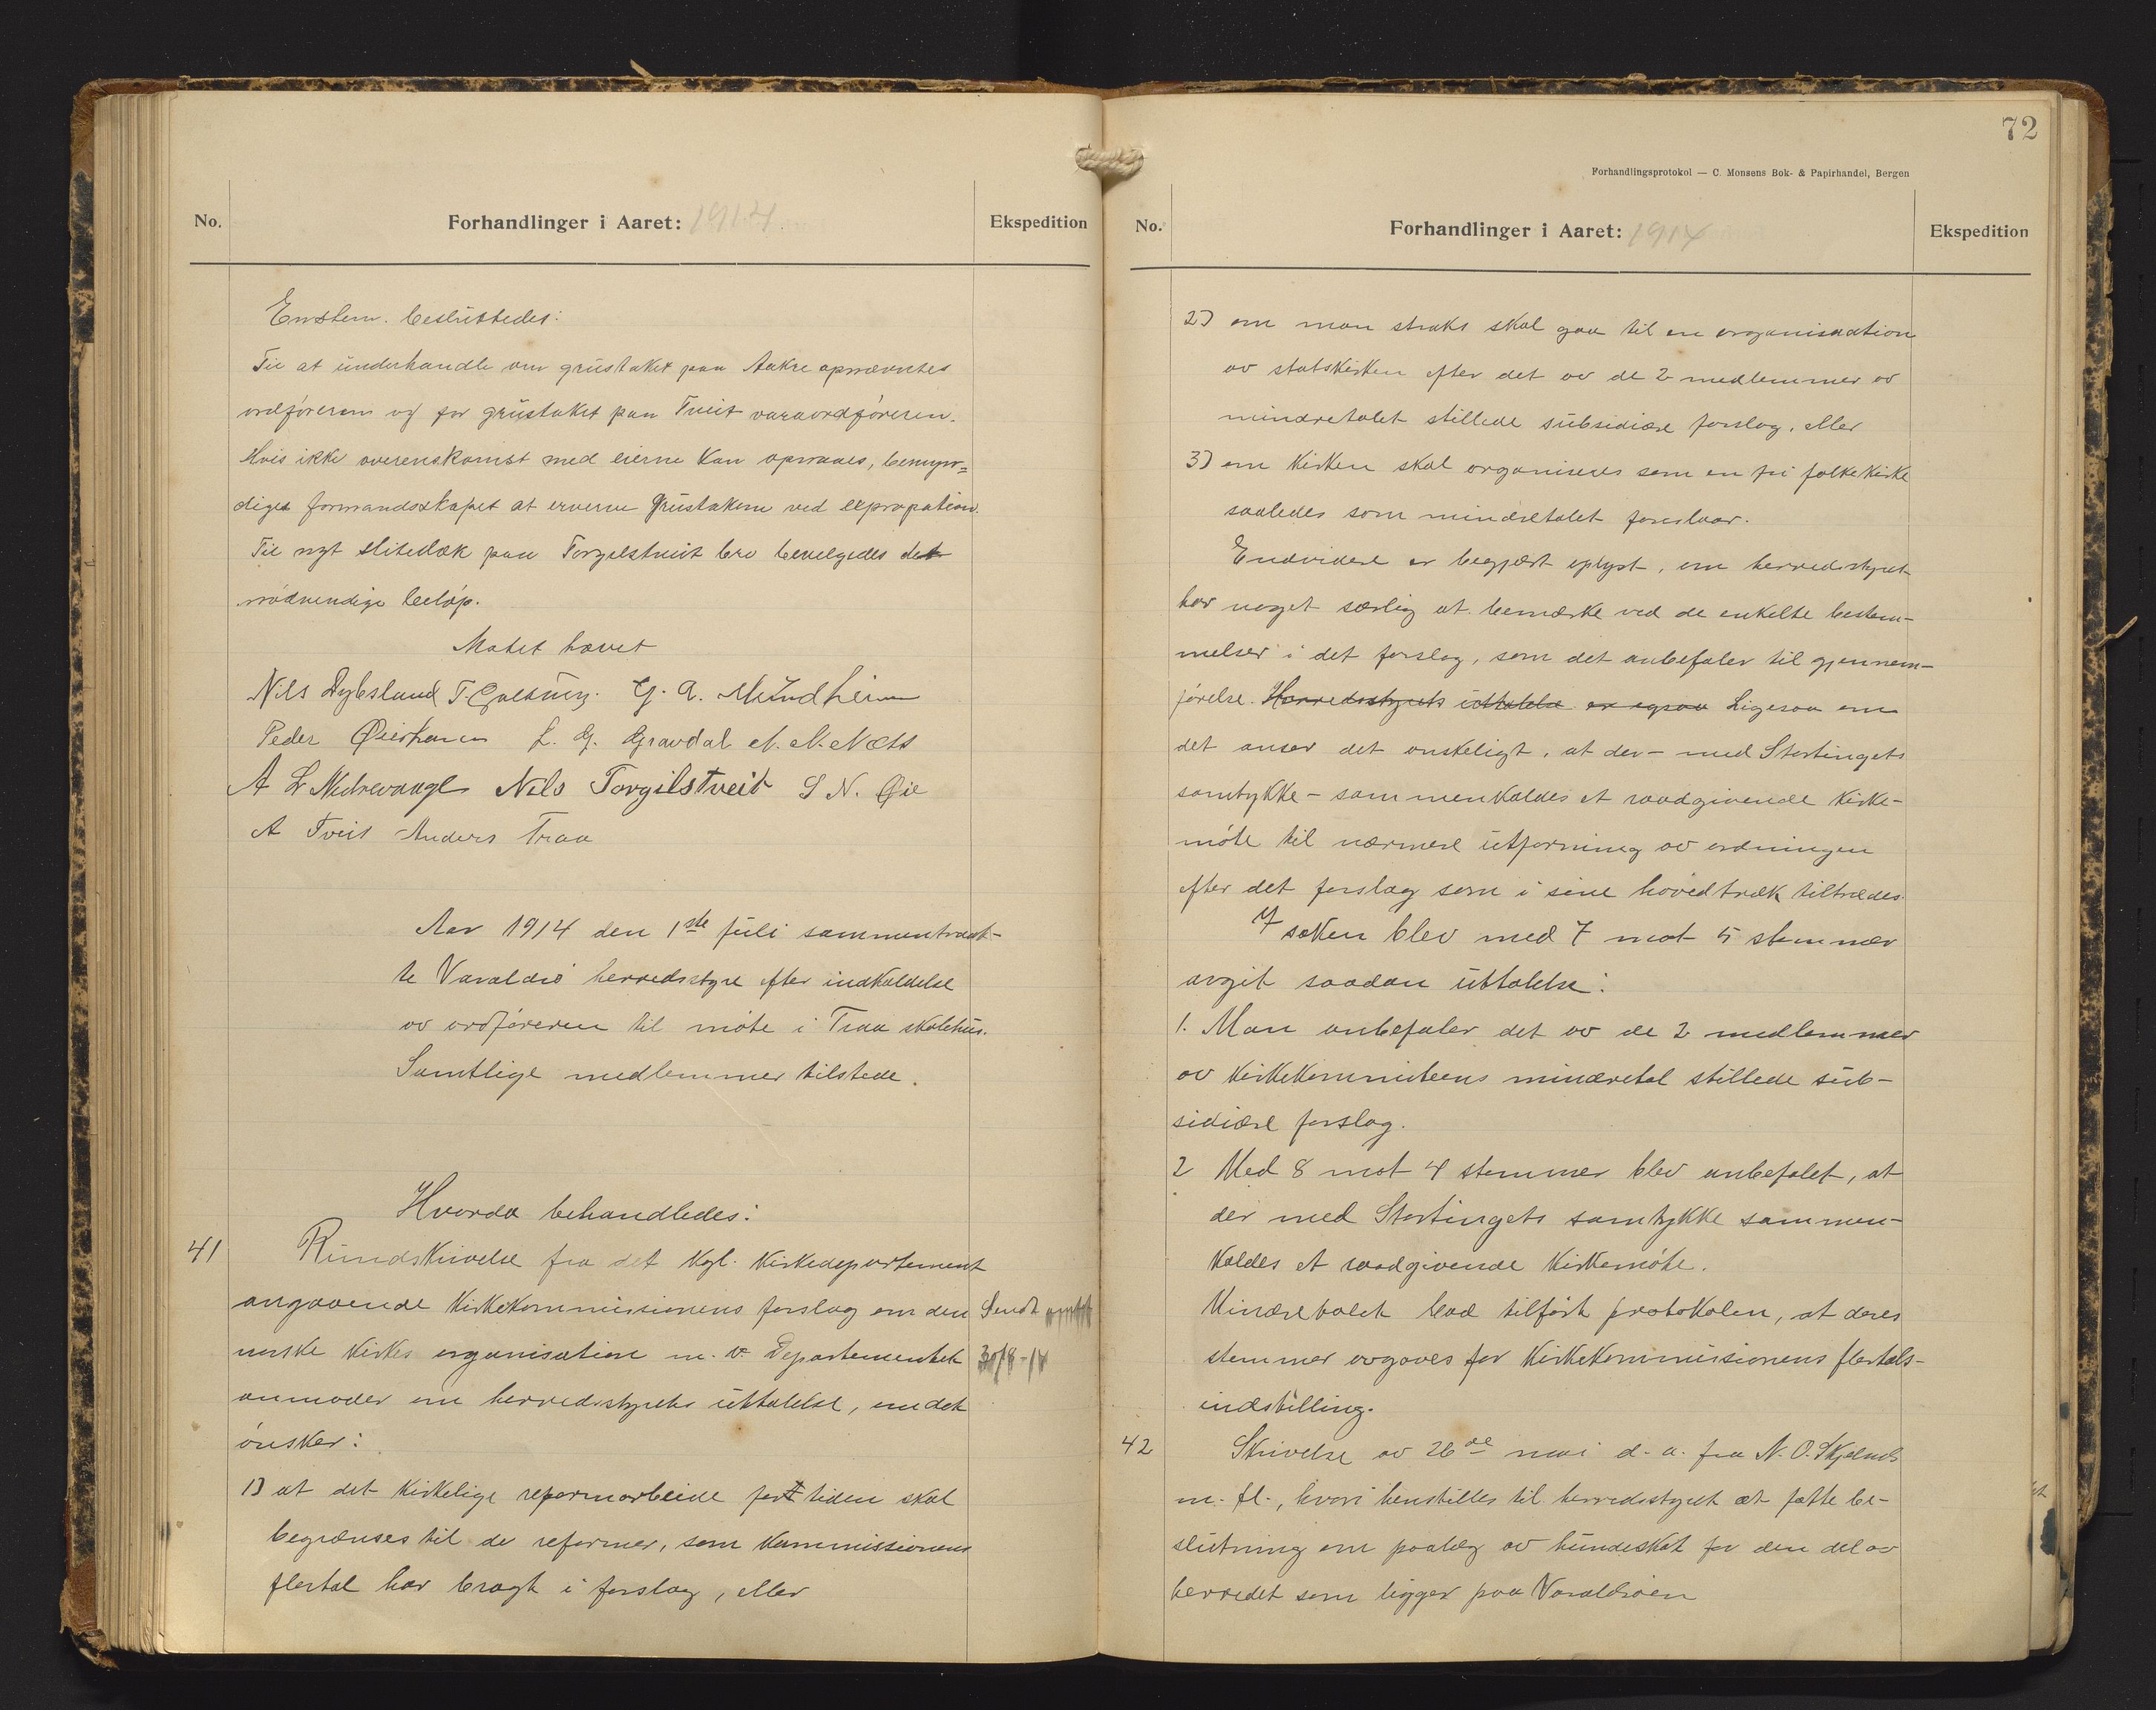 No.
Forhandlinger i Aaret: 1914
Ekspedition
Enstem. besluttedes:
Til at underhandle om grustaket paa Aakre opnævntes
ordføreren og for grustaket paa Tveit varaordføreren.
Hvis ikke overenskomst med eierne kan opnaaes, bemyn=
diges formandsskapet at erverve grustakene ved expropation.
Til nyt slitedæk paa Torgilstveit bro bevilgedes det
nødvendige beløp.
Møtet hævet
Nils Dybsland T. G. A. Mundheim
Peder Øierhavn L. G. Gravdal N. N. Næts
A L Nedrevaage Nils Torgilstveit S N. Øie
A Tveit Anders Traa
Aar 1914 den 1ste juli sammentraad-
te Varaldsø herredsstyre efter indkaldelse
av ordføreren til møte i Traa skolehus.
Samtlige medlemmer tilstede.
Hvorda behandledes:
41 Rundskrivelse fra det kgl. kirkedepartement
angaaende kirkekommissionens forslag om den Sendt amtet
norske kirkes organisation m. v. Departementet 30/8-14
anmoder om herredsstyrets uttalelse, om det
ønsker:
1) at det kirkelige reformarbeide for tiden skal
begrænses til de reformer, som kommissionens
flertal har bragt i forslag, eller
72
Forhandlingsprotokol — C. Monsens Bok- & Papirhandel, Bergen
No.
Forhandlinger i Aaret: 1914
Ekspedition
2) om man straks skal gaa til en organisation
av statskirken efter det av de 2 medlemmer av
mindretalet stillede subsidiære forslag, eller
3) om kirken skal organiseres som en fri folkekirke
saaledes som mindretalet foreslaar.
Endvidere er begjært oplyst, om herredsstyret
har noget særlig at bemærke ved de enkelte bestem-
melser i det forslag, som det anbefaler til gjennem-
førelse. Herredsstyrets uttalelse er ogsaa Ligesaa om
det anser det ønskeligt, at der - med Stortingets
samtykke - sammenkaldes et raadgivende kirke-
møte til nærmere utforming av ordningen
efter det forslag som i sine hovedtræk tiltrædes.
I saken blev med 7 mot 5 stemmer
avgit saadan uttalelse:
1. Man anbefaler det av de 2 medlemmer
av kirkekommiteens mindretal stillede sub-
sidiære forslag.
2 Med 8 mot 4 stemmer blev anbefalet, at
der med Stortingets samtykke sammen-
kaldes et raadgivende kirkemøte.
Mindretalet bad tilført protokolen, at deres
stemmer avgaves for kirkekommissionens flertals-
indstilling.
42 Skrivelse av 26de mai d. a. fra N. O. Skjelnes
m. fl., hvori henstilles til herredsstyret at fatte be-
slutning om paalæg av hundeskat for den del av
herredet som ligger paa Varaldsøen